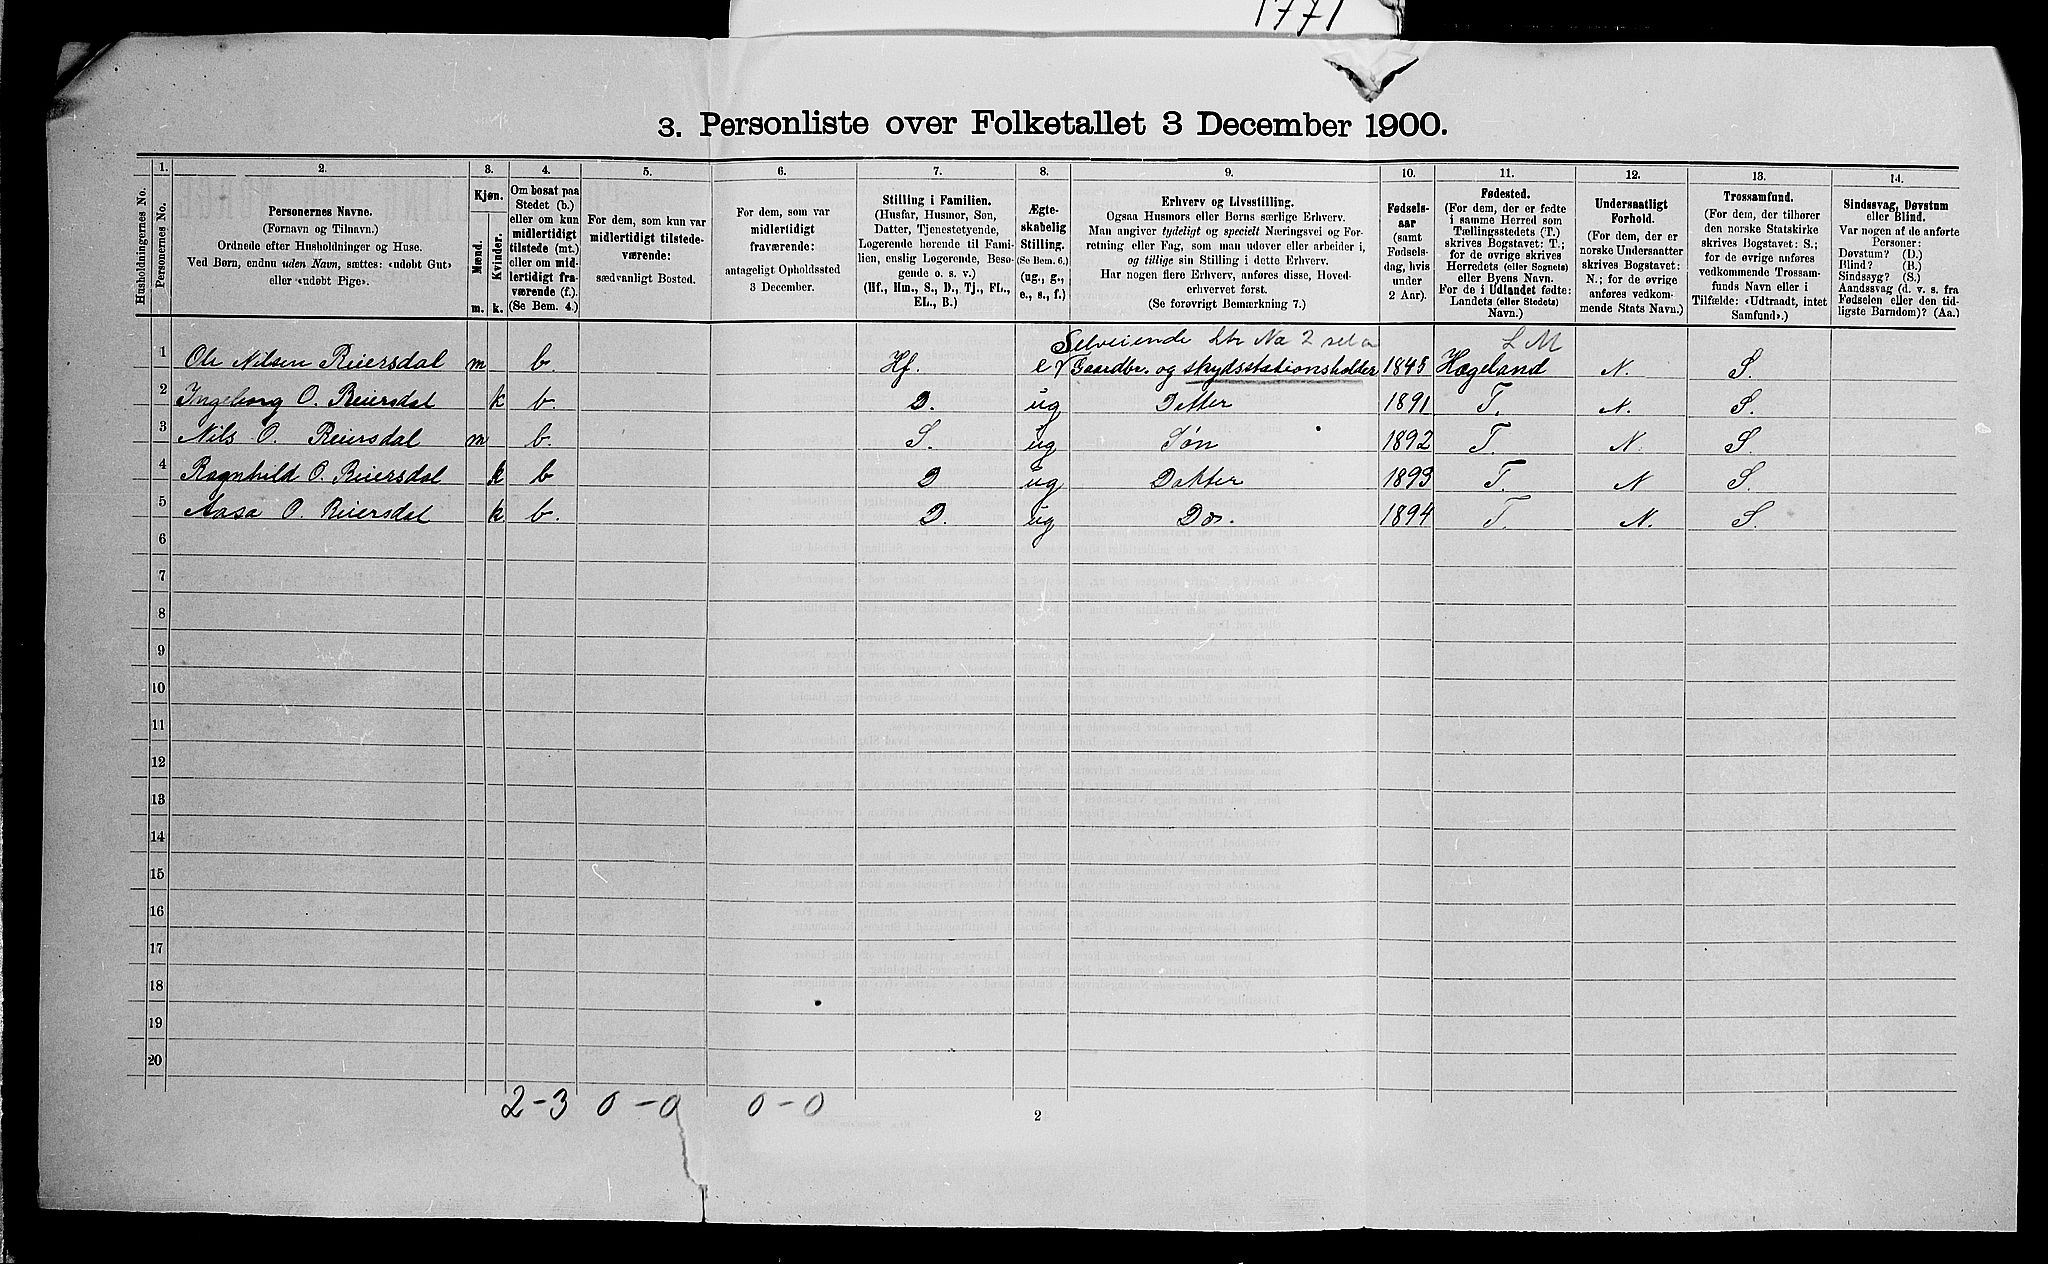 1771
3. Personliste over Folketallet 3 December 1900.
Husholdningernes No.
1.
Personernes No.
2.
Personernes Navne.
(Fornavn og Tilnavn.)
Ordnede efter Husholdninger og Huse.
Ved Børn, endnu uden Navn, sættes: «udøbt Gut»
eller «udøbt Pige».
3.
Kjøn.
Mænd.
Kvinder.
m. k.
4.
Om bosat paa
Stedet (b.)
eller om kun
midlertidigt
tilstede (mt.)
eller om mid-
lertidigt fra-
værende (f.)
(Se Bem. 4.)
5.
For dem, som kun var
midlertidigt tilstede-
værende:
sædvanligt Bosted.
6.
For dem, som var
midlertidigt
fraværende:
antageligt Opholdssted
3 December.
7.
Stilling i Familien.
(Husfar, Husmor, Søn,
Datter, Tjenestetyende,
Logerende hørende til Fami-
lien, enslig Logerende, Besø-
gende o. s. v.)
(Hf., Hm., S., D., Tj., FL.,
EL., B.)
8.
Ægte-
skabelig
Stilling.
(Se Bem. 6.)
(ug., g.,
e., s., f.)
9.
Erhverv og Livsstilling.
Ogsaa Husmors eller Børns særlige Erhverv.
Man angiver tydeligt og specielt Næringsvei og For-
retning eller Fag, som man udover eller arbeider i,
og tillige sin Stilling i dette Erhverv.
Har nogen flere Erhverv, anføres disse, Hoved-
erhvervet først.
(Se forøvrigt Bemærkning 7.)
10.
Fødsels-
aar
(samt
Fødsels-
dag, hvis
under
2 Aar).
11.
Fødested.
(For dem, der er fødte
i samme Herred som
Tællingsstedets (T.)
skrives Bogstavet: T.;
for de øvrige skrives
Herredets (eller Sognets)
eller Byens Navn.
For de i Udlandet fødte:
Landets (eller Stedets)
Navn.)
12.
Undersaatligt
Forhold.
(For dem, der er
norske Undersaatter
skrives Bogstavet:
N.; for de øvrige
anføres vedkom-
mende Stats Navn.)
13.
Trossamfund.
(For dem, der tilhører
den norske Statskirke
skrives Bogstavet: S.;
for de øvrige anføres
vedkommende Trossam-
funds Navn eller i
Tilfælde: «Udtraadt, intet
Samfund».)
14.
Sindssvag, Døvstum
eller Blind.
Var nogen af de anførte
Personer:
Døvstum? (D.)
Blind? (B.)
Sindssyg? (S.)
Aandssvag (d. v. s. fra
Fødselen eller den tid-
ligste Barndom)? (Aa.)
Selveiende 2 L M
1 Ole Nilsen Reiersdal m b. Hf. e Gaardbr. og skydsstationsholder 1845 Hægeland N. S.
2 Ingeborg O. Reiersdal k b. D. ug Datter 1891 T. N. S.
3 Nils O. Reiersdal m b. S. ug Søn 1892 T. N. S.
4 Ragnhild O. Reiersdal k b D ug Datter 1893 T. N S.
5 Aasa O. Reiersdal k b. D. ug Do. 1894 T. N. S.
6
7
8
9
10
11
12
13
14
15
16
17
18
19
20
2-3 0-0 0-0
2